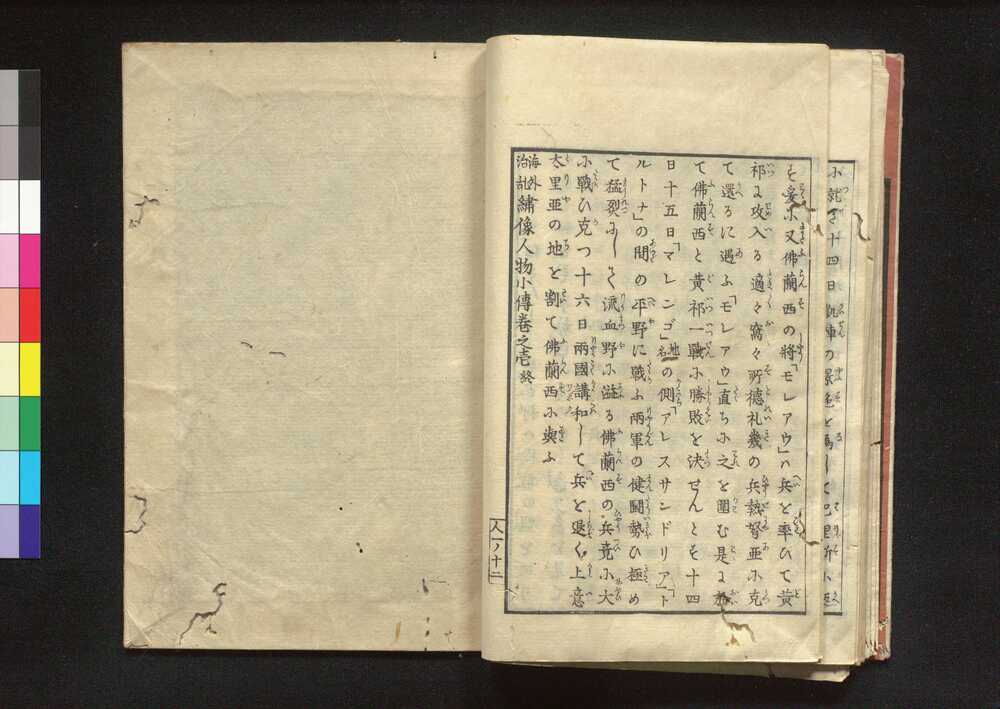 を妥ふ又佛蘭西の將「モレアウ」ハ兵を率ひて黄
祁に攻入る適々窩々所德礼幾の兵熱督亜ふ克
て還るに遇ふ「モレアウ」直ち小之を圍む是に
て佛蘭西と黄祁一戰小勝敗を決せんとを十四
日十五日「マレンゴ」地名の側「アレスサンドリア」「ト
ルトナ」の間の平野に戰ふ兩軍の健鬪勢ひ極め
て猛裂にして流血野小溢る佛蘭西の兵竟小大
小戰ひ克つ十六日兩國講和して兵を退く上意
太里亜の地を割て佛蘭西小與ふ
海外治乱繍像人物小傳卷之壱終
人一ノ十二